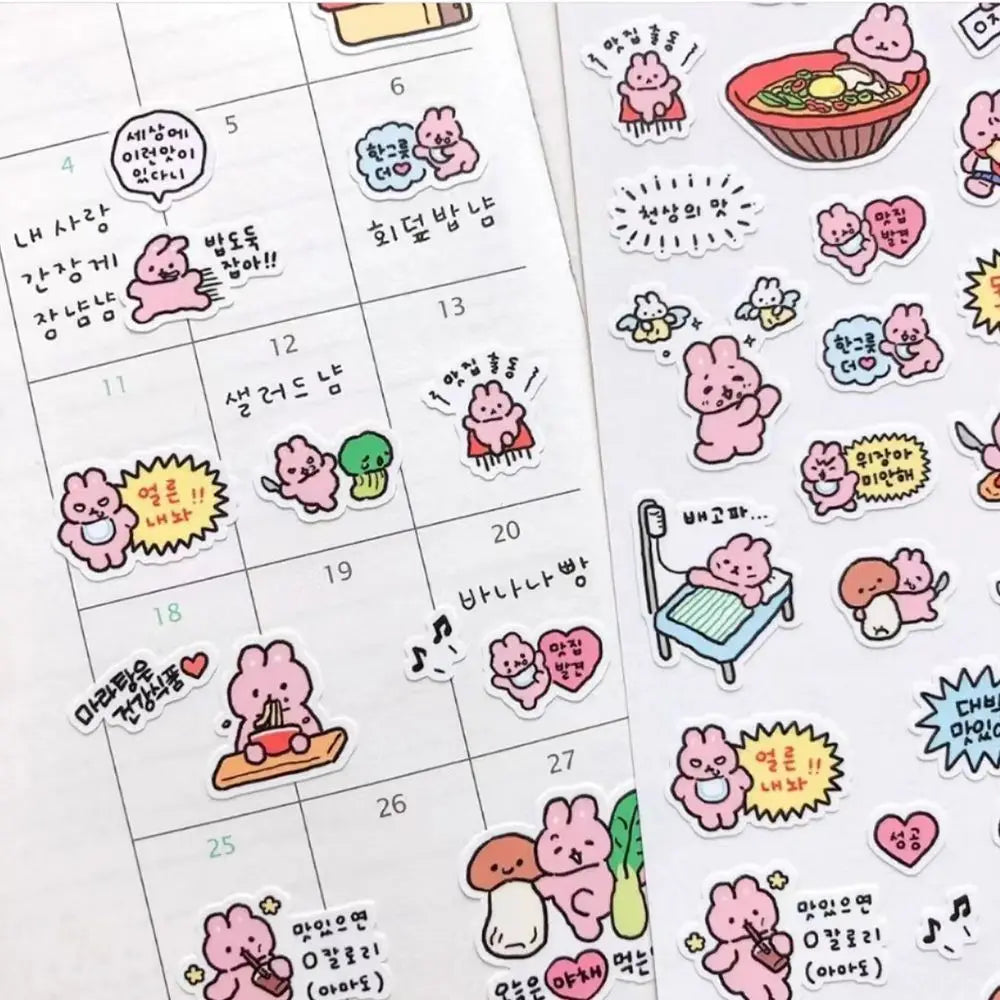 4
5
6
세상에
이런맛이
있다니
한그릇
더♡
내 사랑
간장게
장냠냠
밥도둑
잡아!!
회덮밥 냠
11
12
13
샐러드 냠
맛집 출동
얼른!!
내놔
18
19
20
바나나 빵
마라탕은
건강식품♥
맛집
발견
25
26
27
맛있으면
0칼로리
(아마도)
오늘은 야채
맛집 출동
천상의 맛
맛집
발견
한그릇
더♡
위장아
미안해
배고파...
얼른!!
내놔
성공
맛있으면
0칼로리
(아마도)